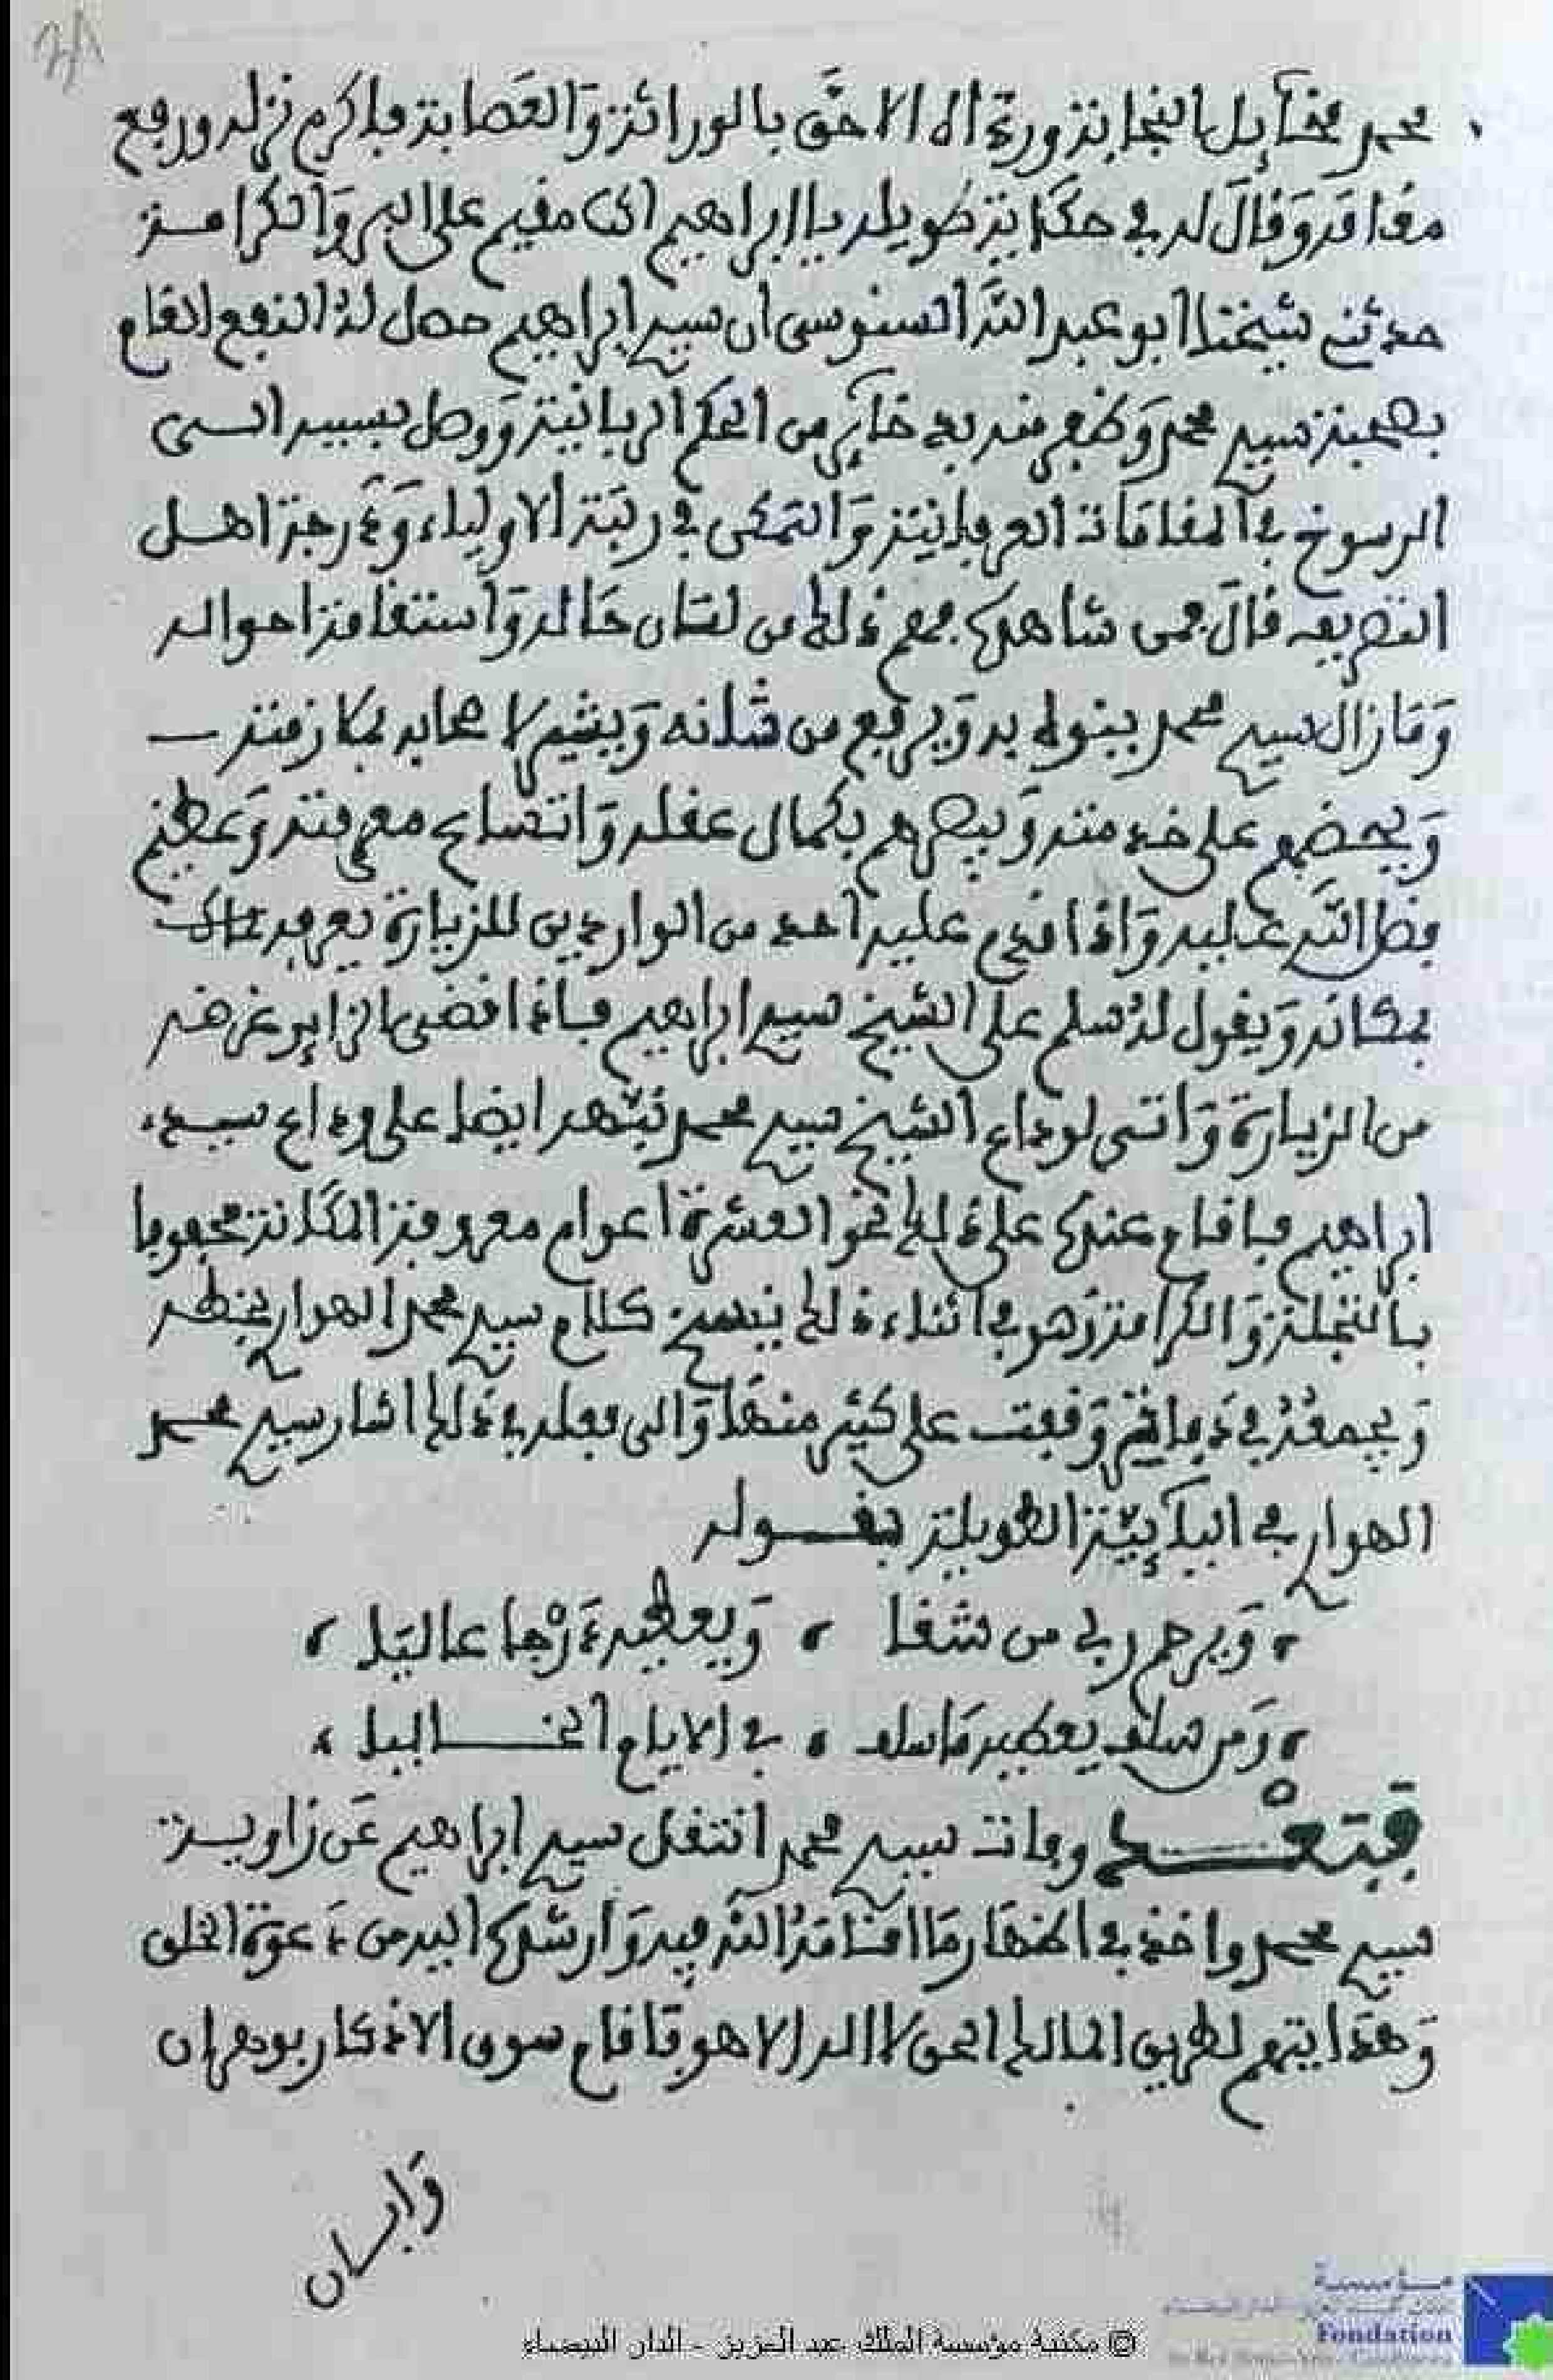 محمد مخايل النجابة ورءاه الاحق بالوراثة والعصابة فاكرم نزله ورفع
مقامه وقال له في حكاية طويلة يا ابراهيم انك مقيم على البر والكرامة
حدثني شيخنا ابو عبد الله السنوسي ان سيدي ابراهيم حصل له النفع التام
بصحبة سيدي محمد وظفر منه بذخاير من الحكم الربانية ووصل بسببه الى
الرسوخ في المقامات العرفانية والتمكن في رتبة الاولياء ودرجة اهل
التصريف قال فمن شاهده فهم ذلك من لسان حاله واستقامة احواله
وما زال سيدي محمد ينوه به ويرفع من شانه ويشير لاصحابه بمكانته
ويحضهم على خدمته ويبصرهم بكمال عقله واتساع معرفته وعظيم
فضل الله عليه واذا قدم عليه احد من الواردين للزيارة يعرفه
بمكانه ويقول له سلم على الشيخ سيدي ابراهيم فاذا قضى الزاير غرضه
من الزيارة واتى لوداع الشيخ سيدي محمد نبهه ايضا على وداع سيدي
ابراهيم فاقام عنده على ذلك نحو العشرة اعوام معروف المكانة محفوفا
بالتجلة والكرامة وهو في اثناء ذلك ينسخ كلام سيدي محمد الهواري بخطه
ويجمعه في وقفت على كثير منها والى فعله في ذلك اشار سيدي محمد
الهواري في اليائية الطويلة بقوله
ويرحم ربي من شفا ، ويعطيه درجا عاليا ،
ومن سلف يعطيه ما سلف ، في الايام الخاليا ،
فبعد وفات سيدي محمد انتقل سيدي ابراهيم عن زاوية
سيدي محمد واخذ في اظهار ما اقامه الله فيه وارشده اليه من دعوة الخلق
وهدايتهم لطريق المالك الحق لا اله الا هو فاقام سوق الاذكار بوهران
وابان
© مكتبة مؤسسة الملك عبد العزيز - الدار البيضاء
مؤسسة
Fondation